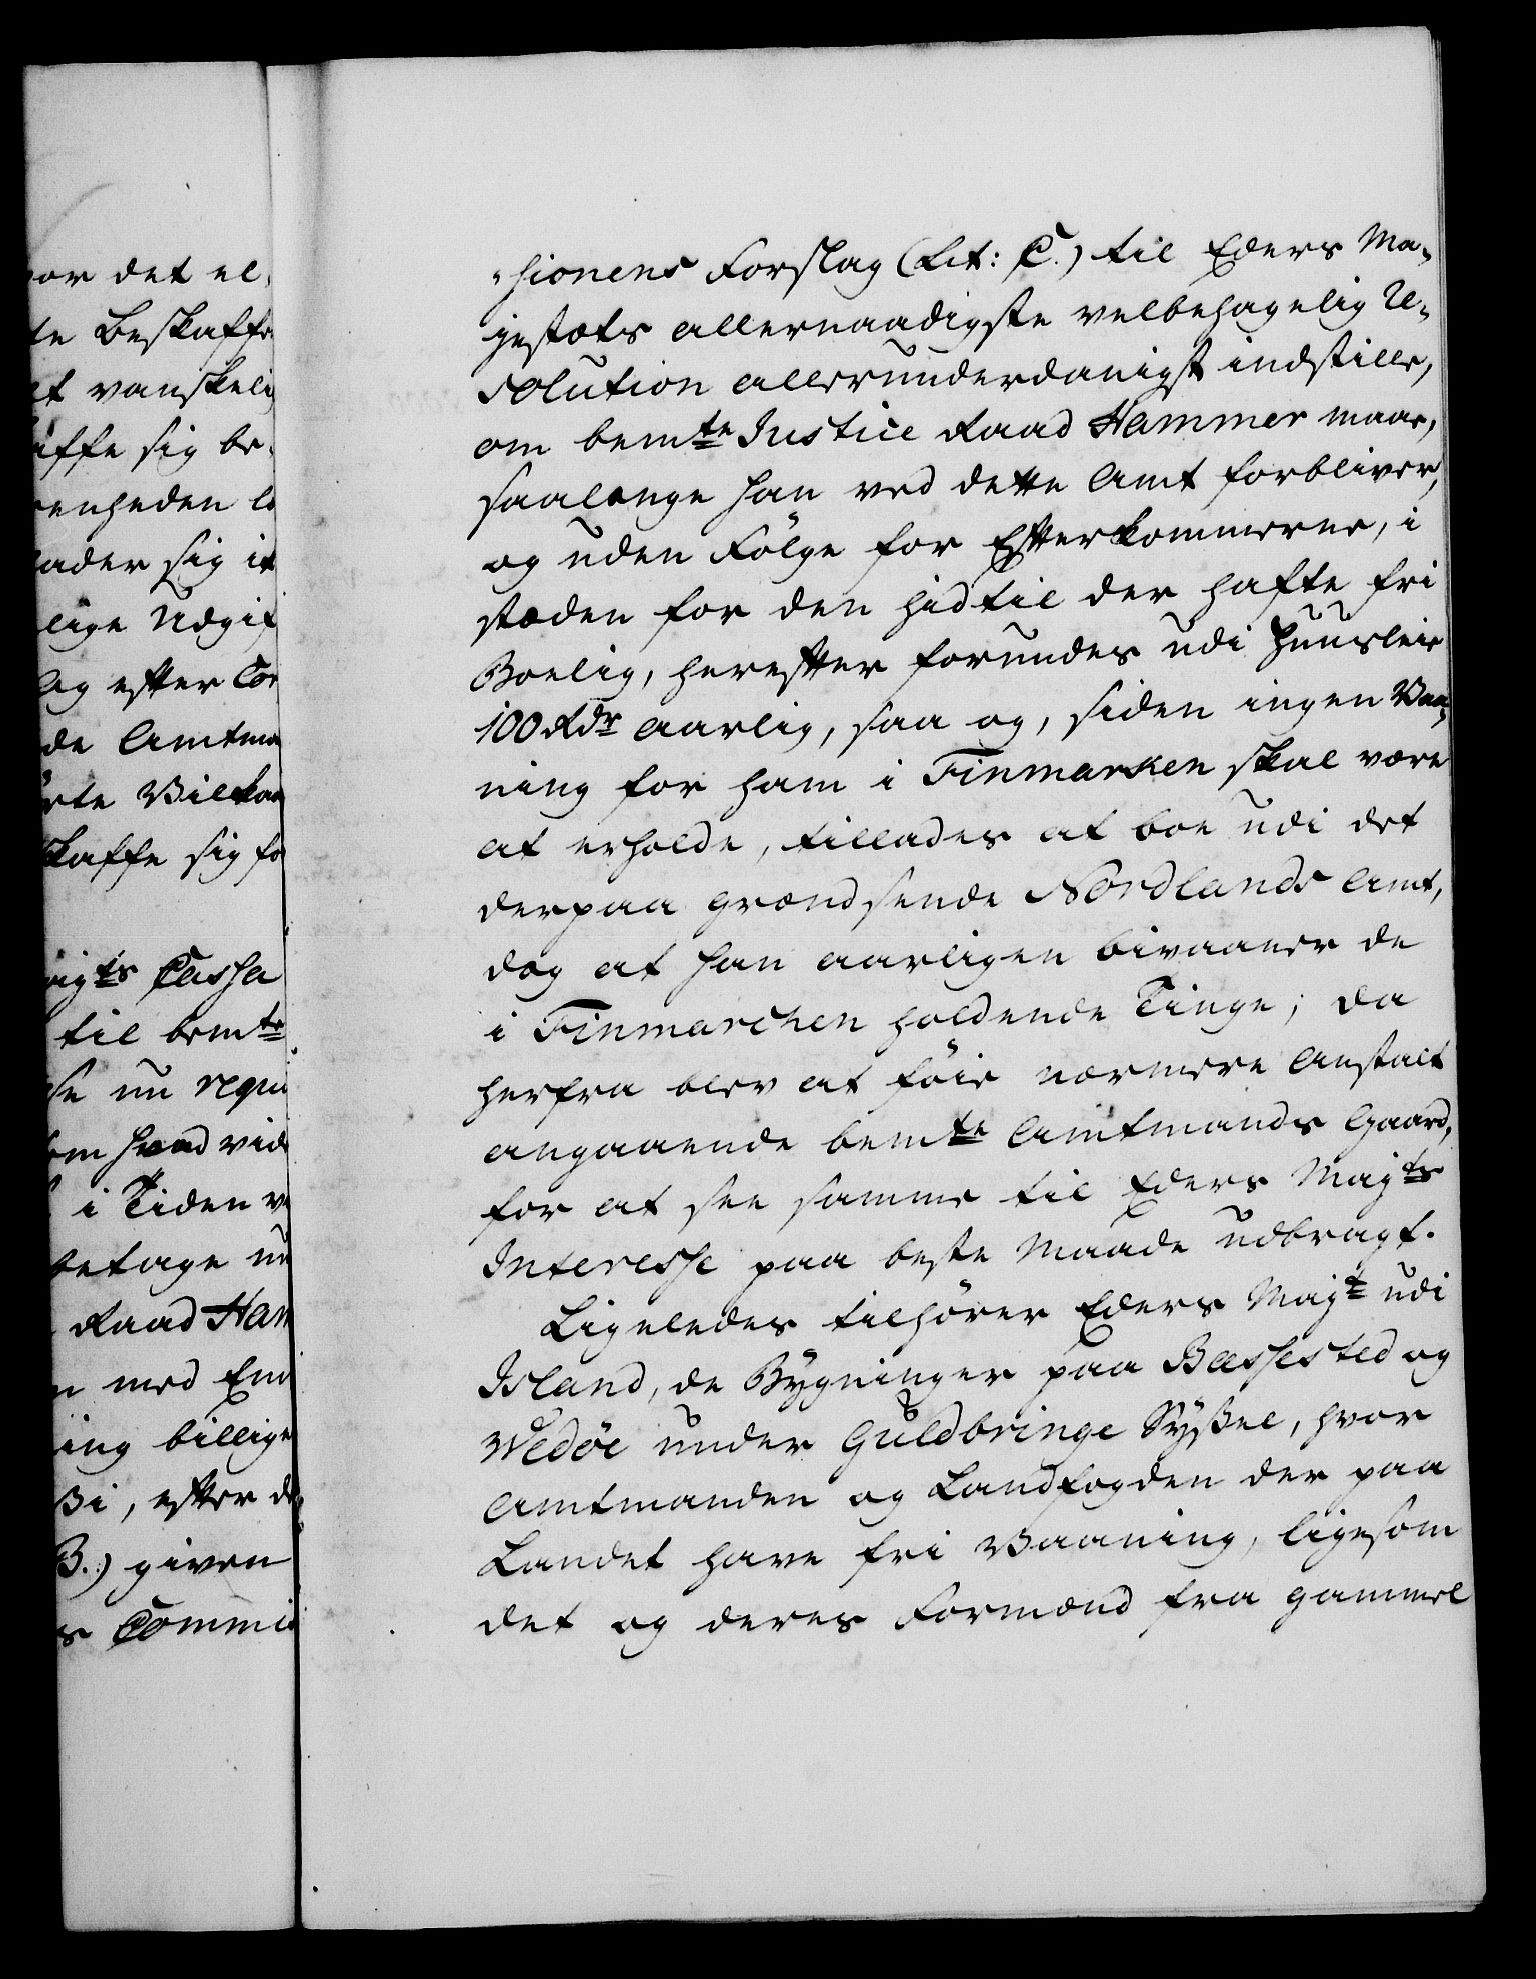 or det el,
te Beskaffe
et vanskelig
affe sig be,
enheden
ader sig ik
lige Udgif
lig efter
de Amtma
ørte Vilkaa
skaffe sig fo
igts Cassa
til bemte
se nu
om hvad vid
i Tiden
betage
Raad Ham
n med
ing billige
Bi, efter de
B.) given
s Commis
„sionens Forslag (Lit: C.) til Eders Ma„
jestæts allernaadigste velbehagelig Re„
solution allerunderdanigst indstille,
om bemte Justice Raad Hammer maae,
saalænge han ved dette Amt forbliver,
og uden Følge for Efterkommerne, i
stæden for den hidtil der hafte fri
Boelig, herefter forundes udi Huusleie
100 Rdr aarlig, saa og, siden ingen Vaa„
ning for ham i Finmarken skal være
at erholde, tillades at boe udi det
derpaa grændsende Nordlands Amt,
dog at han aarligen bivaaner de
i Finmarchen holdende Tinge; da
herfra blev at føie nærmere Anstalt
angaaende bemte Amtmands Gaard,
for at see samme til Eders Majts
Interesse paa beste Maade udbragt.
Ligeledes tilhører Eders Majt udi
Island, de Bygninger paa Bæssested og
Wedøe under Guldbringe Syssel, hvor
Amtmanden og Landfogden der paa
Landet have fri Vaaning, ligesom
det og deres Formænd fra gammel